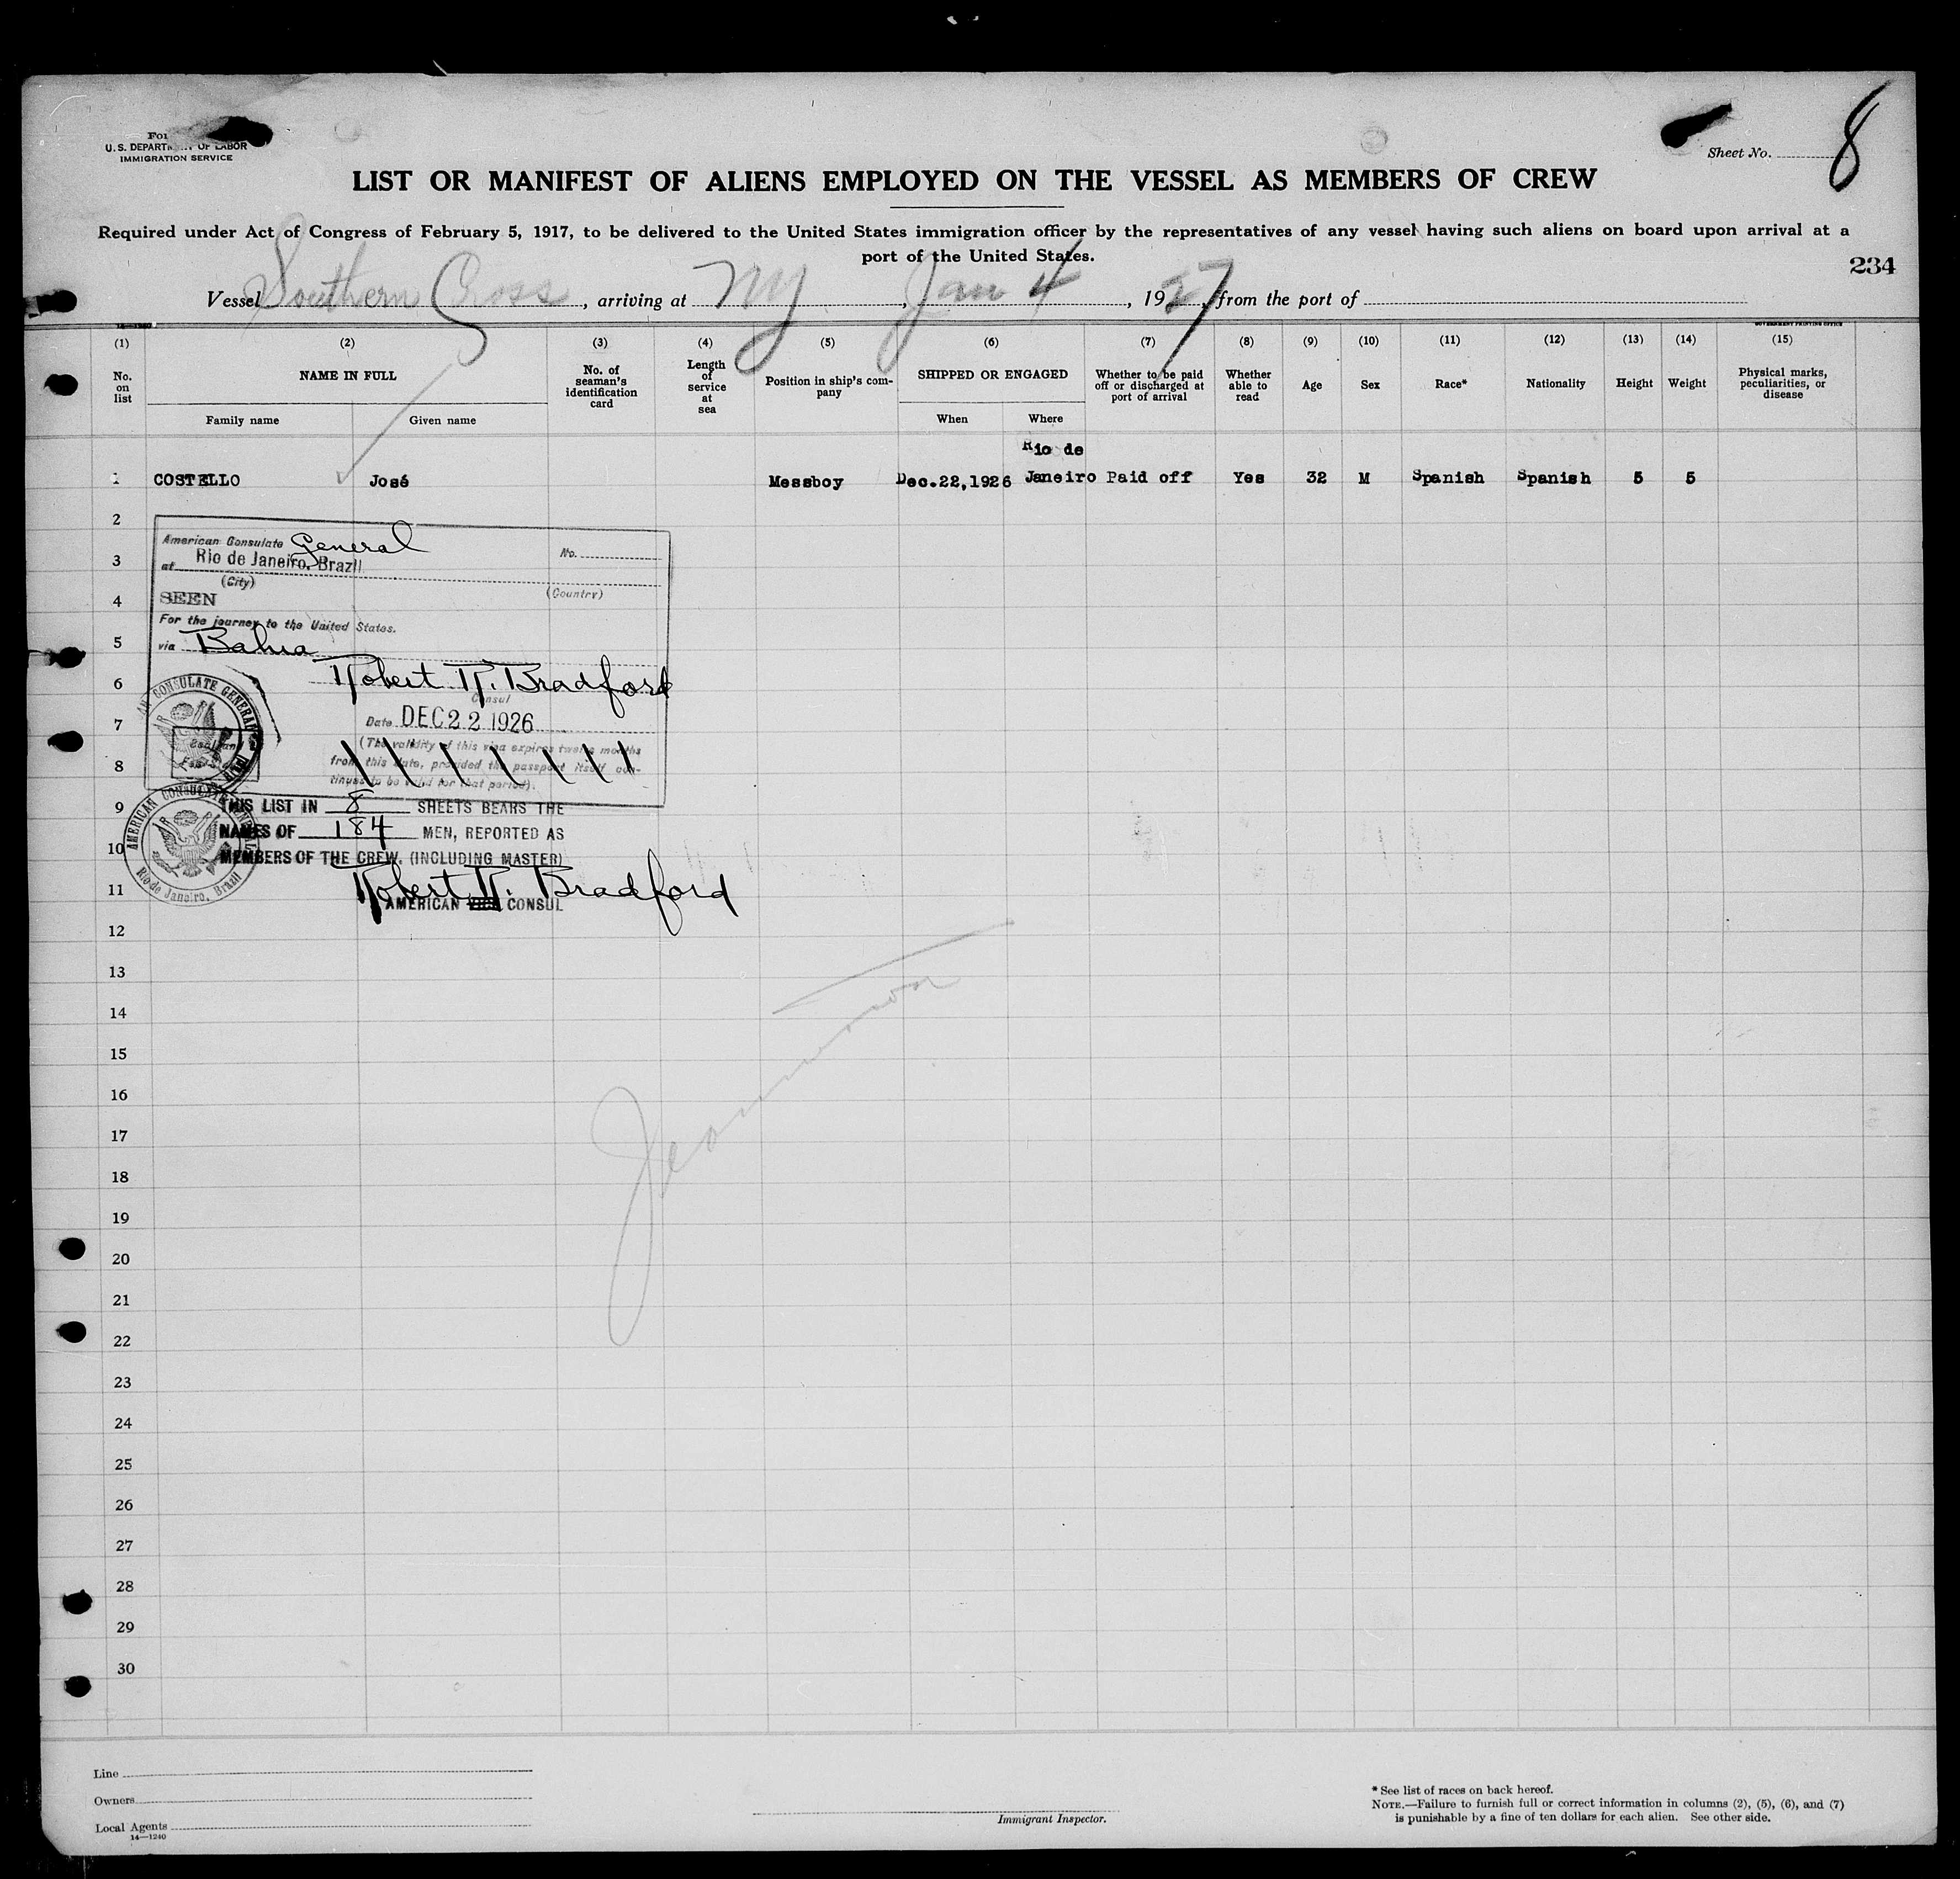 For
U. S. DEPARTM OF LABOR
IMMIGRATION SERVICE
Sheet No. 8
LIST OR MANIFEST OF ALIENS EMPLOYED ON THE VESSEL AS MEMBERS OF CREW
Required under Act of Congress of February 5, 1917, to be delivered to the United States immigration officer by the representatives of any vessel having such aliens on board upon arrival at a
port of the United States.
234
Vessel Southern Cross, arriving at NY, Jan 4, 1927, from the port of
GOVERNMENT PRINTING OFFICE
(1) (2) (3) (4) (5) (6) (7) (8) (9) (10) (11) (12) (13) (14) (15)
No. on list
NAME IN FULL
Family name
Given name
No. of seaman's identification card
Length of service at sea
Position in ship's com-
pany
SHIPPED OR ENGAGED
When
Where
Whether to be paid off or discharged at port of arrival
Whether able to read
Age
Sex
Race*
Nationality
Height
Weight
Physical marks, peculiarities, or disease
Rio de
1 COSTELLO José Messboy Dec.22,1926 Janeiro Paid off Yes 32 M Spanish Spanish 5 5
2
3
4
5
6
7
8
9
10
11
12
13
14
15
16
17
18
19
20
21
22
23
24
25
26
27
28
29
30
American Consulate General
No.
at Rio de Janeiro, Brazil
(City)
(Country)
SEEN
For the journey to the United States.
via Bahia
Robert R. Bradford
Consul
Date DEC 22 1926
(The validity of this visa expires twelve months
from this date, provided the passport itself con-
tinues to be valid for that period).
CONSULATE GENERAL
THIS LIST IN 8 SHEETS BEARS THE
NAMES OF 184 MEN, REPORTED AS
MEMBERS OF THE CREW. (INCLUDING MASTER)
Robert R. Bradford
AMERICAN VICE CONSUL
AMERICAN CONSULATE GENERAL
Rio de Janeiro, Brazil
Line
Owners
Local Agents
14—1240
Immigrant Inspector.
* See list of races on back hereof.
NOTE.—Failure to furnish full or correct information in columns (2), (5), (6), and (7)
is punishable by a fine of ten dollars for each alien. See other side.